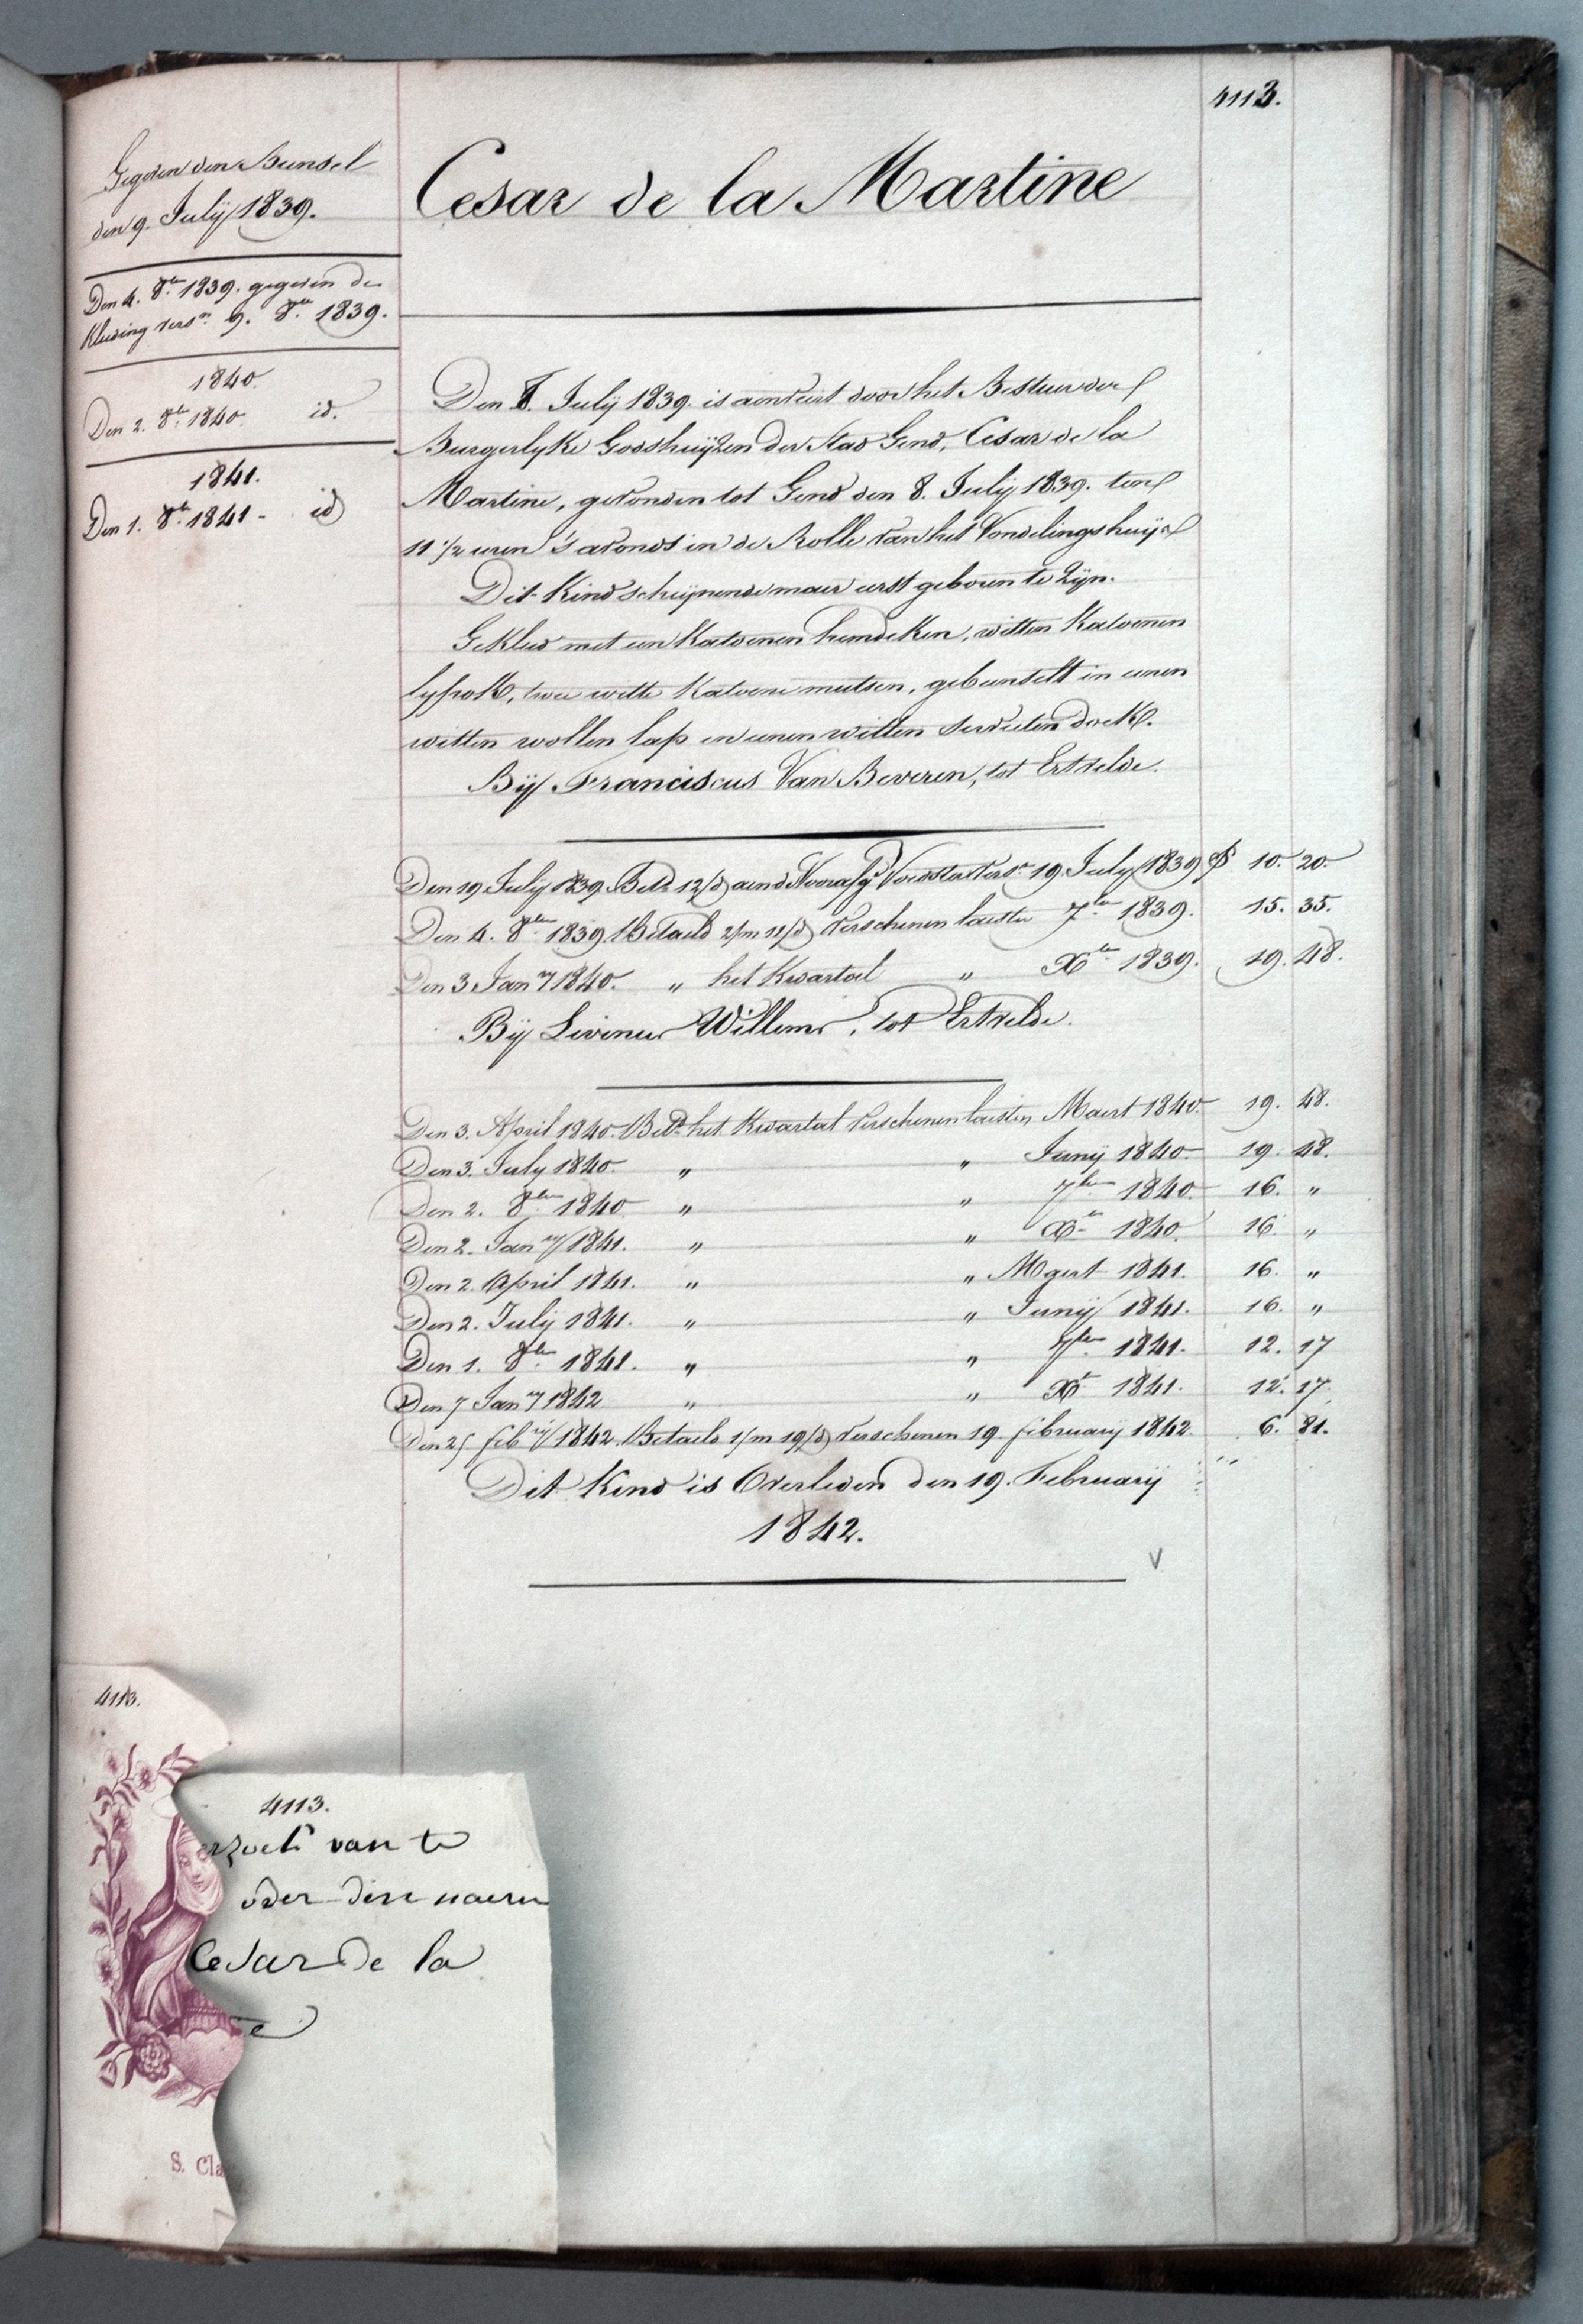 4113.
Gegeven den Bunsel
den 9. Julij 1839.
Den 4. 8bre 1839. gegeven de
Kleeding versn. 9. 8bre 1839.
1840.
Den 2. 8bre 1840. id.
1841.
Den 1. 8bre 1841 - id
Cesar de la Martine
Den 8. Julij 1839. is aenveirt door het Bestuer der
Burgerlyke Godshuijzen der Stad Gend, Cesar de la
Martine, gevonden tot Gend den 8. Julij 1839. ten
11 1/2 uren 's avonds in de Rolle van het Vondelingshuijs
Dit Kind schijnende maer eerst geboren te zijn.
Gekleed met een Katoenen hemdeken, witten Katoenen
lyfrok, twee witte Katoene mutsen, gebunselt in eenen
witten wollen lap en eenen witten servieten doek.
Bij Franciscus Van Beveren, tot Ertvelde.
Den 19 Julij 1839. Betd. 12/d aend Voorsz Voedster 19 July 1839 10. 20.
Den 4. 8bre 1839 Betaeld 2/m 11/d verschenen laesten 7bre 1839. 15. 35.
Den 3 Jany 1840. " het Kwartael " Xbre 1839. 19. 48.
Bij Livinus Willems, tot Ertvelde.
Den 3. April 1840. Betd. het Kwartael verschenen laesten Maert 1840 19. 48.
Den 3. July 1840 " " Junij 1840 19. 48.
Den 2. 8bre 1840 " " 7bre 1840 16. "
Den 2. Jany 1841. " " Xbre 1840. 16. "
Den 2. April 1841. " " Maert 1841. 16. "
Den 2. Julij 1841. " " Junij 1841. 16. "
Den 1. 8bre 1841. " " 7bre 1841. 12. 17
Den 7 Jany 1842 " " Xbre 1841. 12. 17.
Den 25 febry 1842. Betaeld 1/m 19/d verschenen 19. februarij 1842. 6. 81.
Dit Kind is Overleden den 19. Februarij
1842.
V
4113.
4113.
erzoek van te
oder den naem
Cesar de la
e
S. Cla